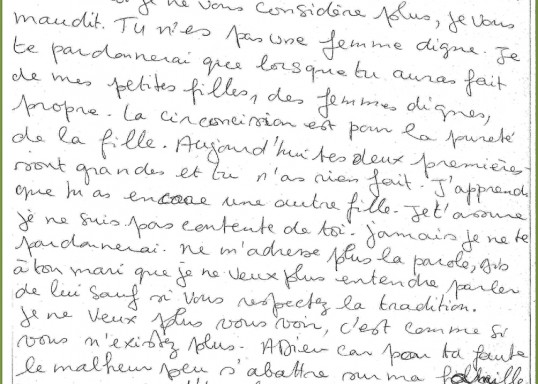 je ne vous considère plus, je vous
maudit. Tu n'es pas une femme digne. Je
te pardonnerai que lorsque tu auras fait
de mes petites filles, des femmes dignes,
propre. La circoncision est pour la pureté
de la fille. Aujourd'hui tes deux premières
sont grandes et tu n'as rien fait. J'apprends
que tu as encore une autre fille. Je t'assure
je ne suis pas contente de toi. jamais je ne te
pardonnerai. ne m'adresse plus la parole, dis
à ton mari que je ne veux plus entendre parler
de lui sauf si vous respectez la tradition.
je ne veux plus vous voir, c'est comme si
vous n'existez plus. ADieu car pour ta faute
le malheur peu s'abattre sur ma